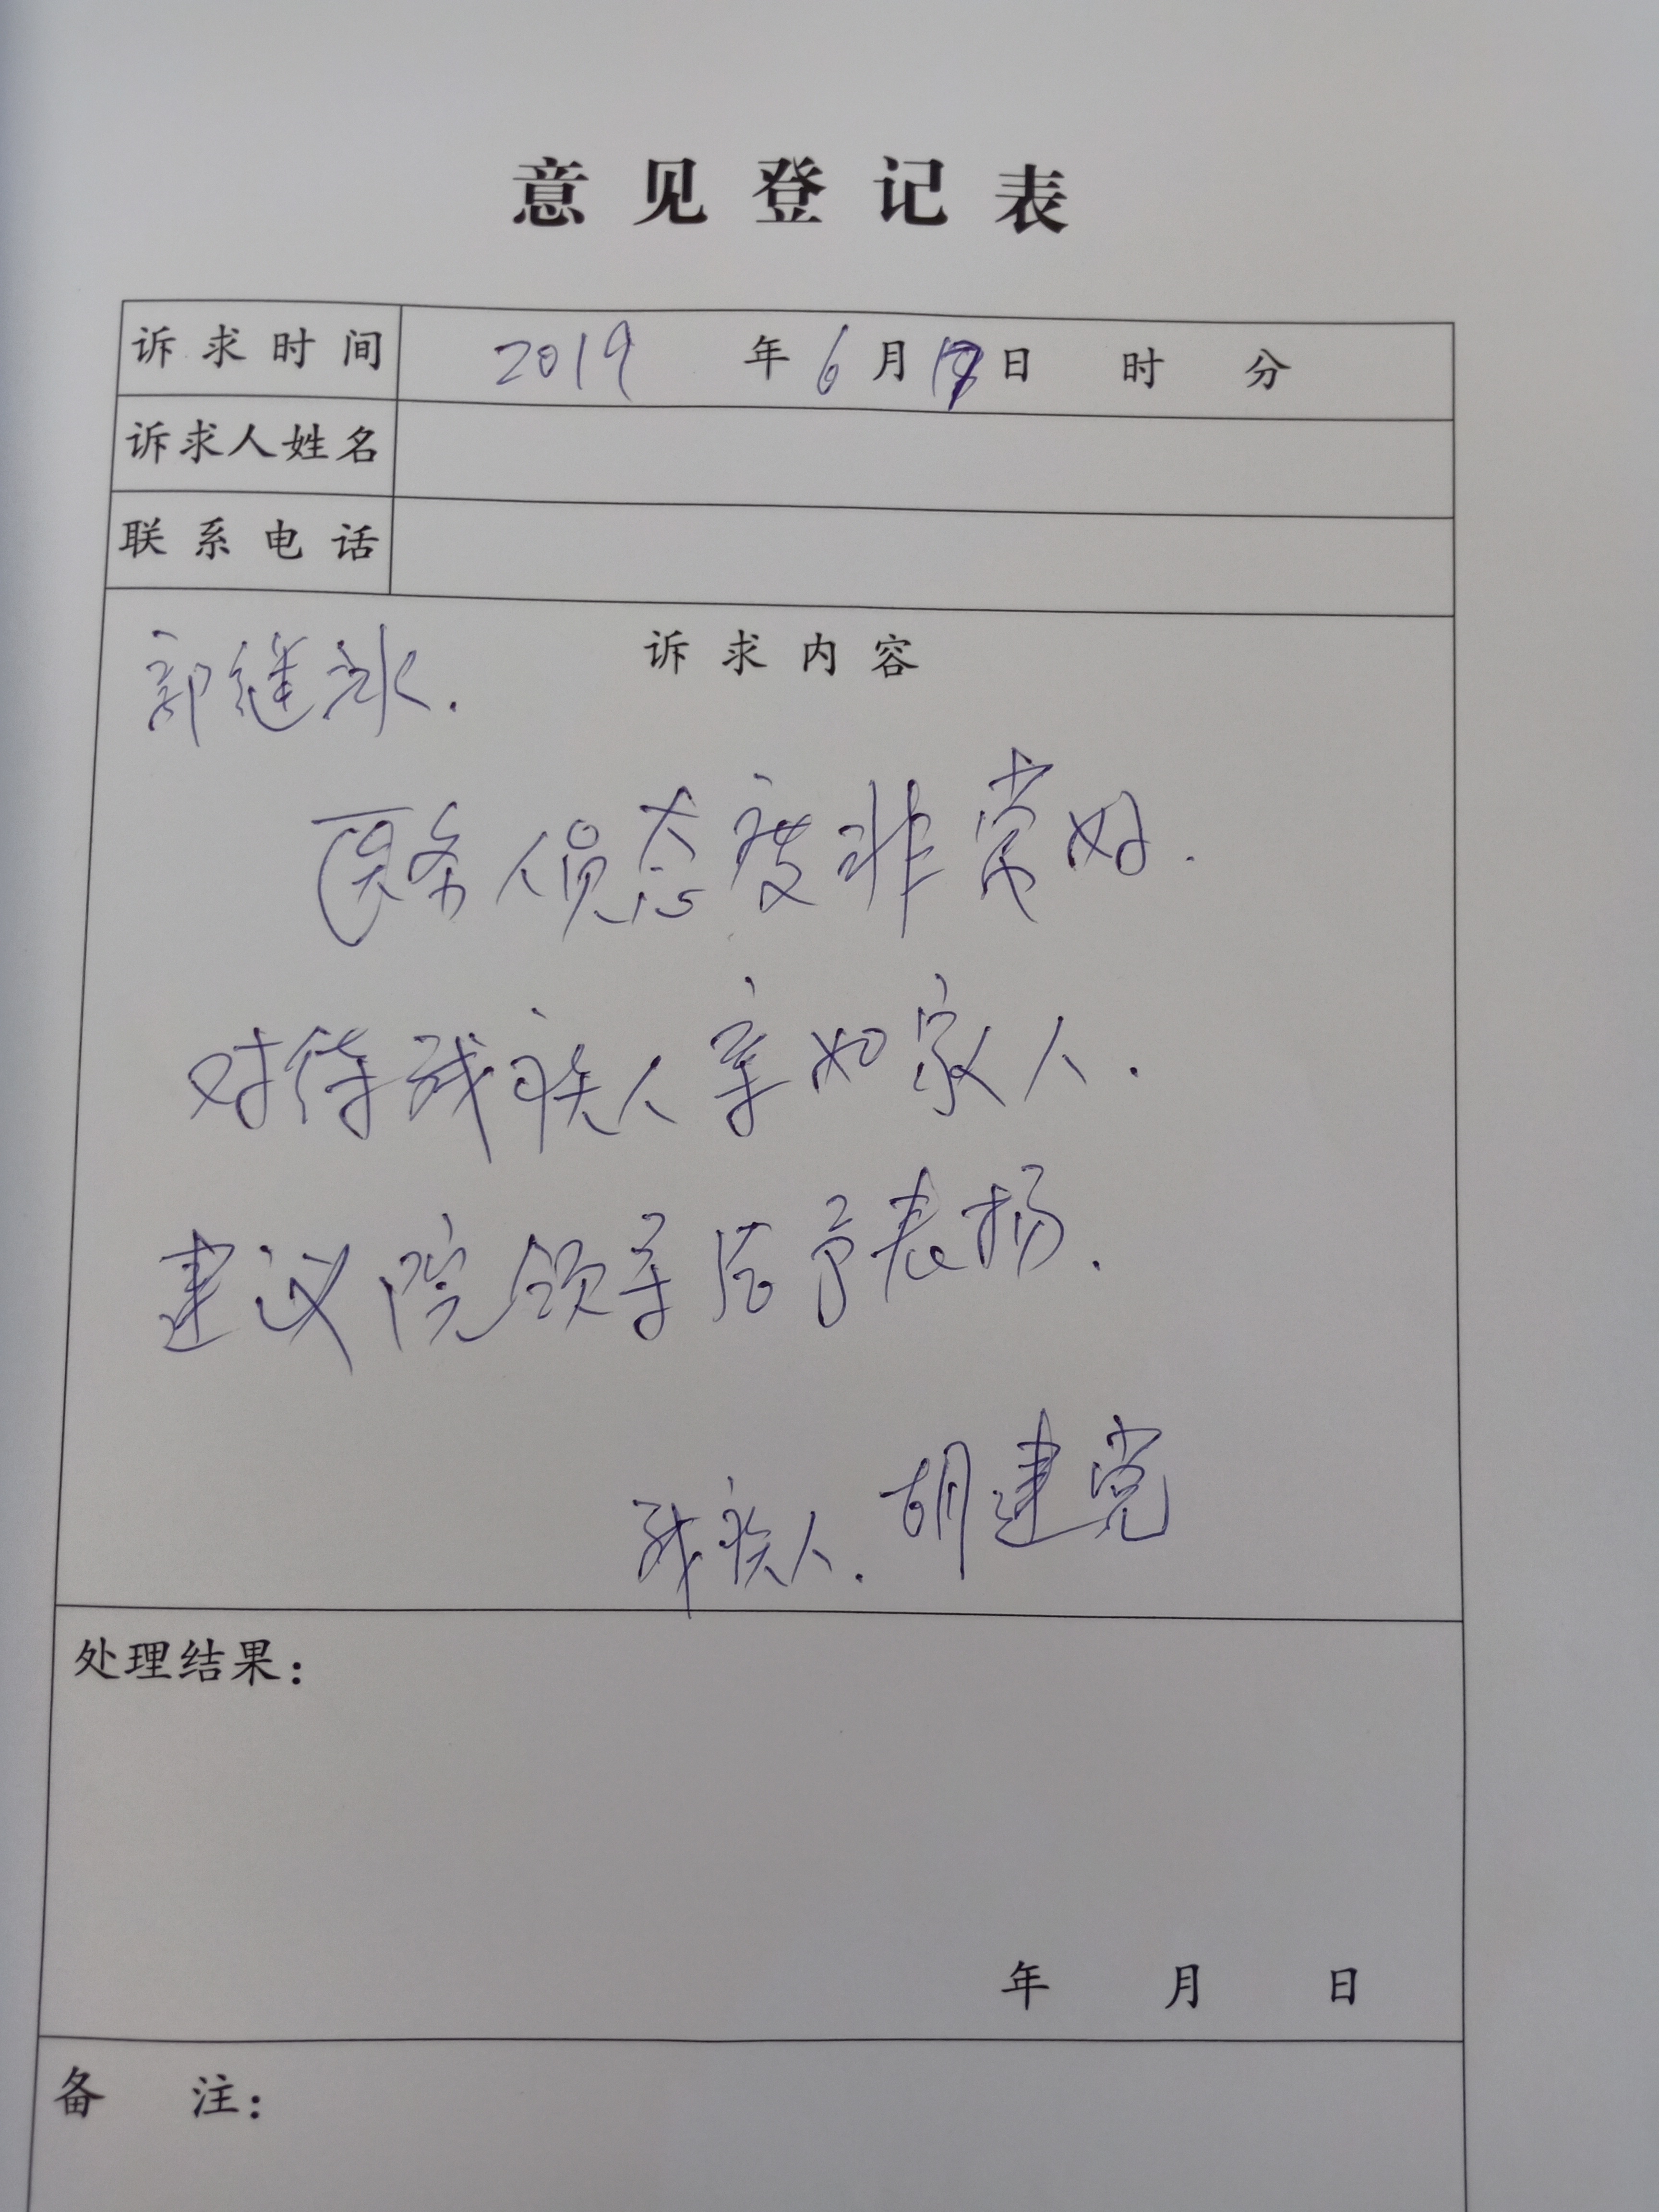 意见登记表
诉求时间 2019 年 6 月 日 时 分
诉求人姓名
联系电话
诉求内容
郭继
医务人员态度非常好.
对待残疾人亲如家人.
建议院领导给予表扬.
残疾人. 胡建党
处理结果:
年 月 日
备 注: